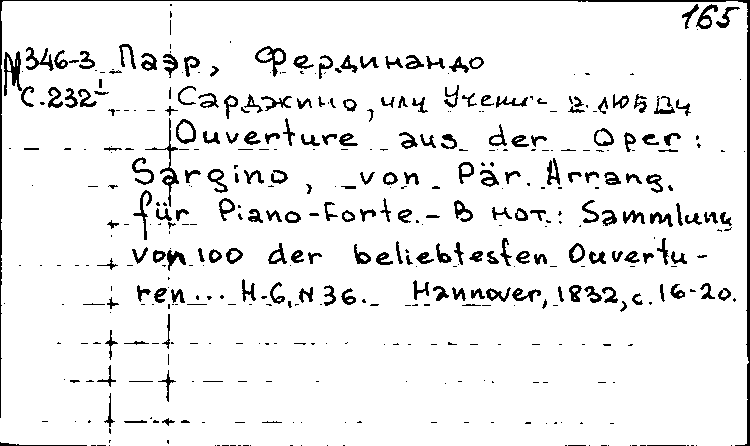 165
М346-3 Паэр, Фердинандо
С.232¹ Сарджино, или Ученик любви
Ouverture aus der Oper:
Sargino, von Pär. Arrang.
für Piano-Forte.- В нот.: Sammlung
von 100 der beliebtesten Ouvertu-
ren... H.6, N36. Hannover, 1832, с. 16-20.